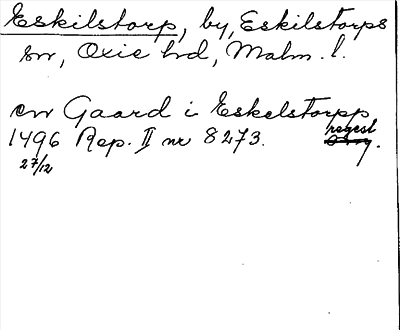 Eskilstorp, by, Eskilstorps
sn, Oxie hd, Malm. l.
en Gaard i Eskelstorpp
1496 Rep. II nr 8273. regest
27/12